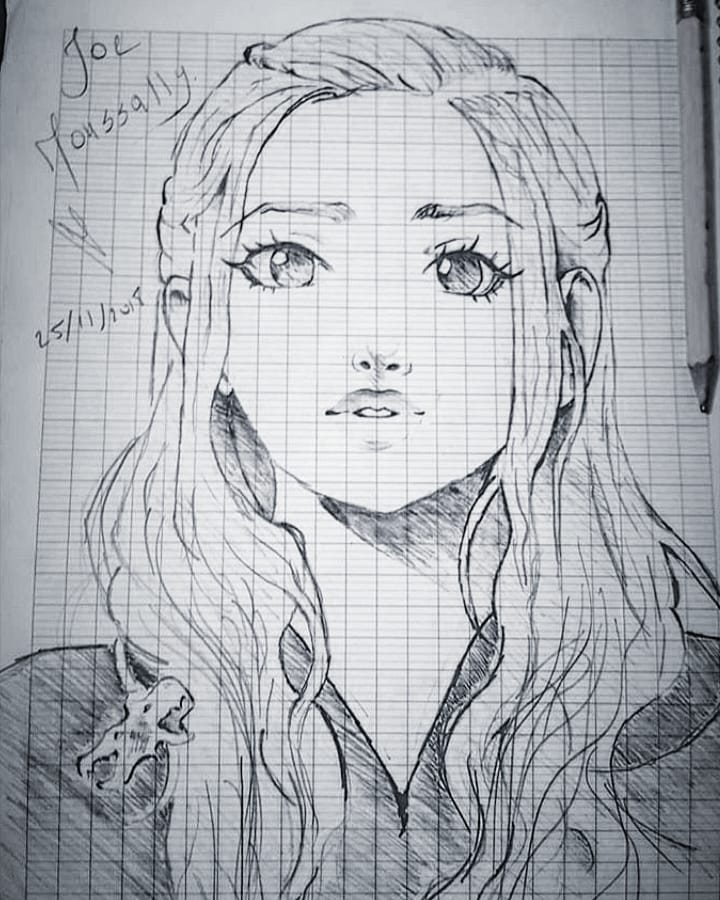 Joe
Youssally
25/11/2018